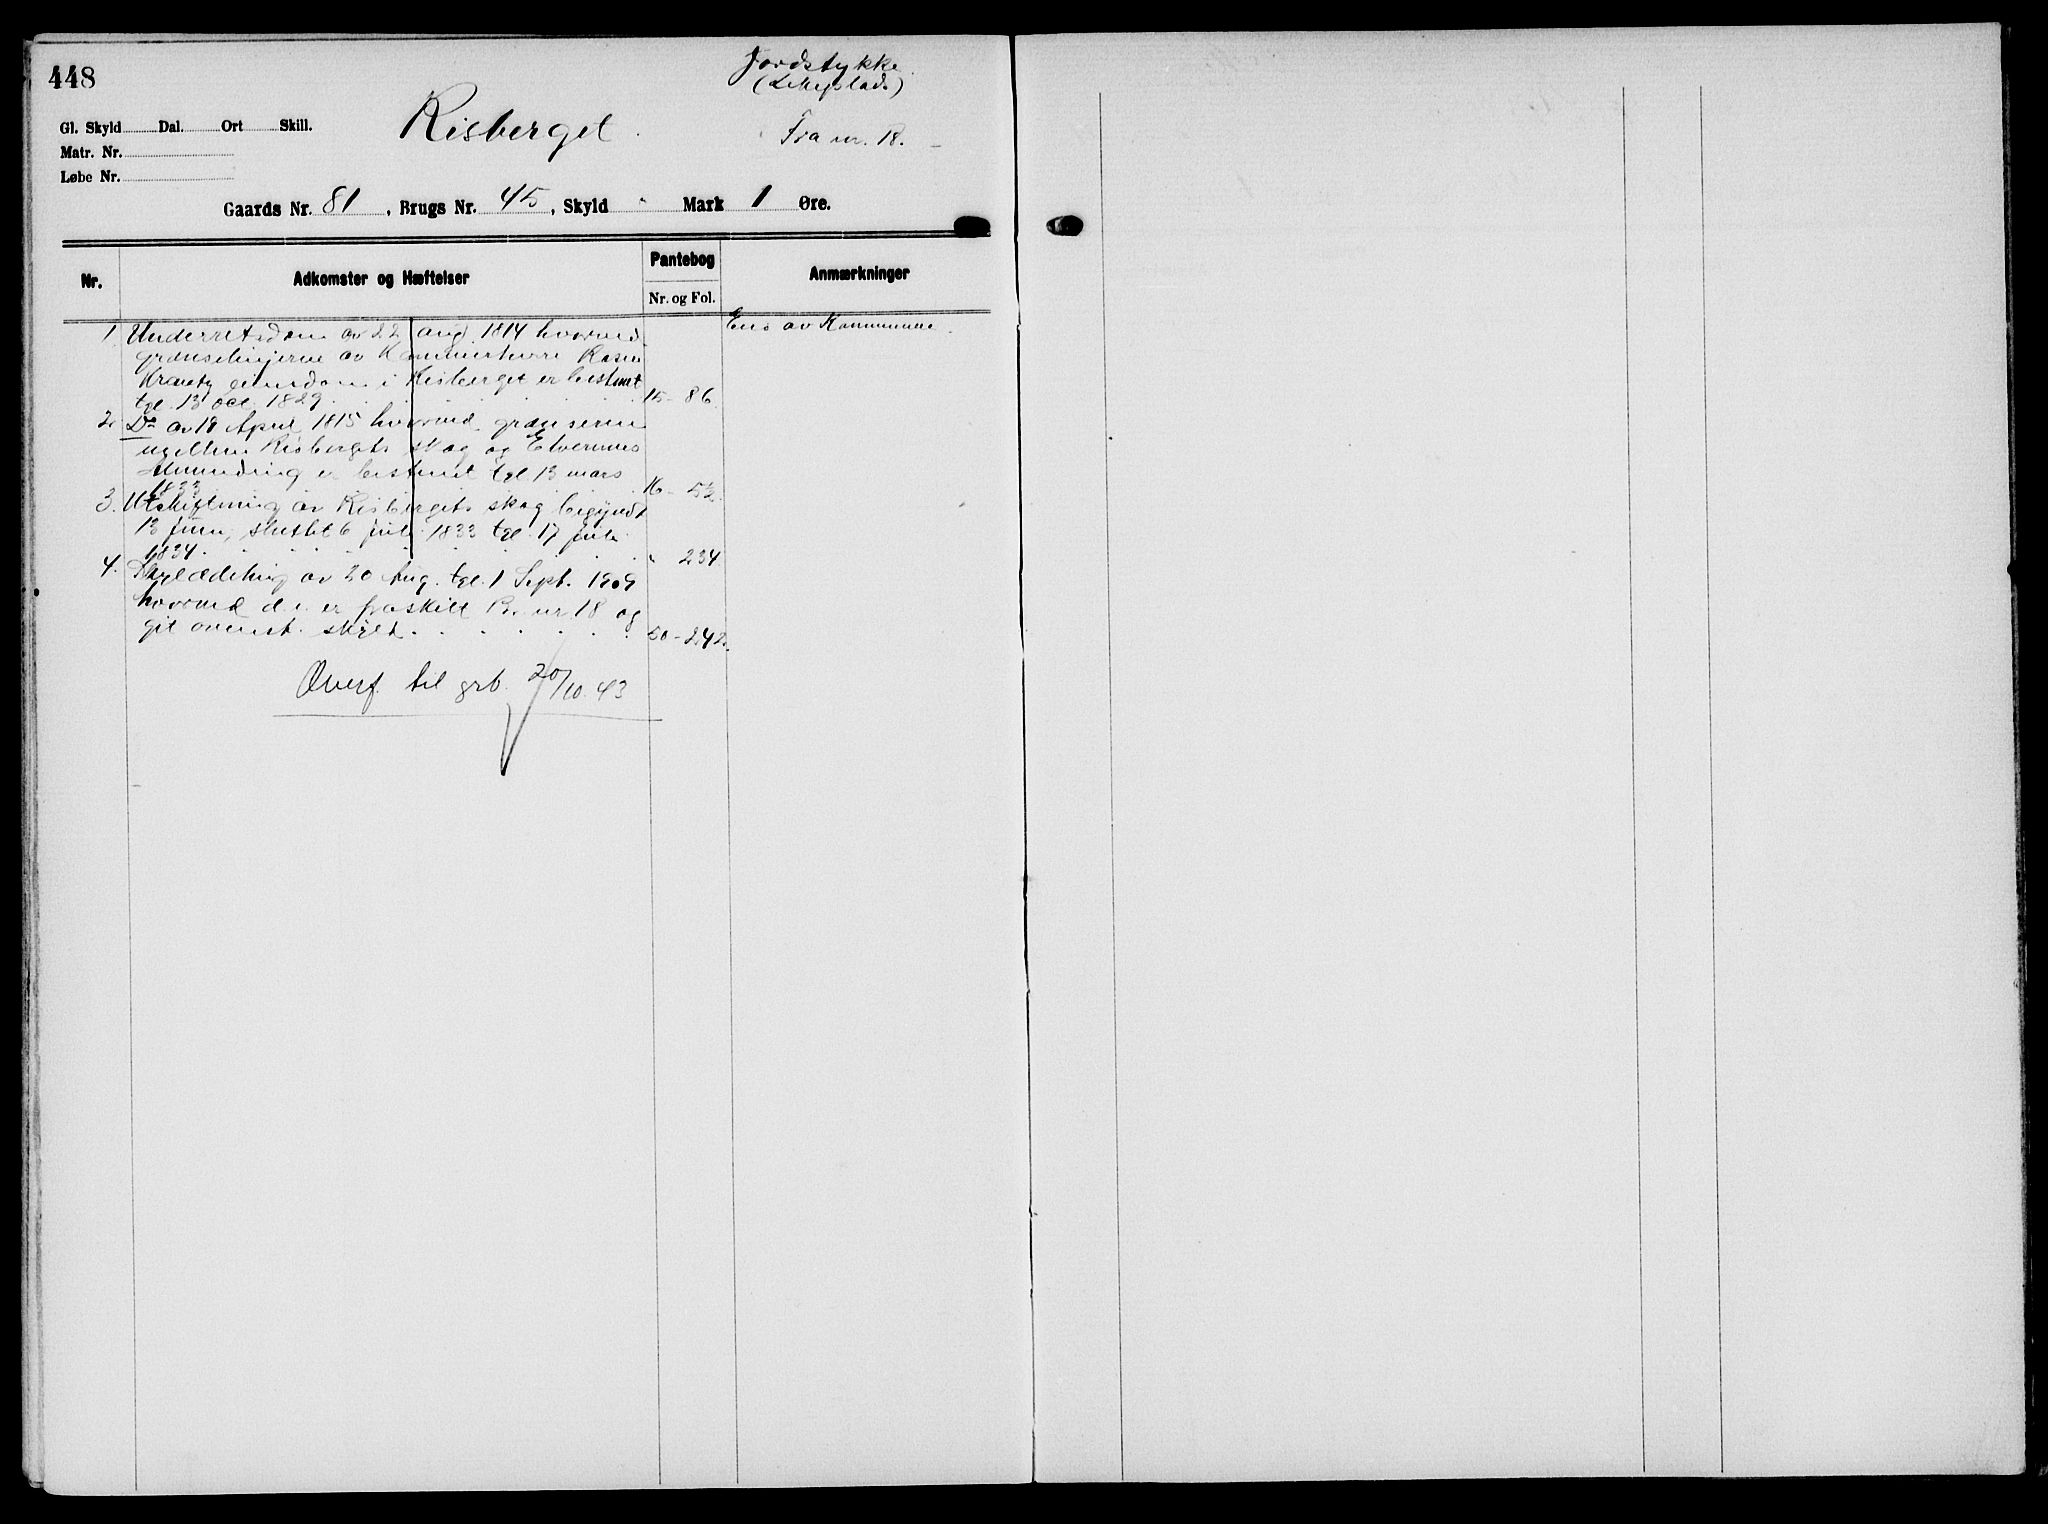 448
Jordstykke
Gl. Skyld Dal. Ort Skill.
Risberget
Fra nr. 18.
Matr. Nr.
Løbe Nr.
Gaards Nr. 81, Brugs Nr. 45, Skyld " Mark 1 Øre.
Nr. Adkomster og Hæftelser Pantebog Anmærkninger
Nr. og Fol.
1. Underretsdom av 22 aug. 1814 hvorved Eies av Kommunen.
grænselinjerne av Kammerherre Rosen
Krantz eiendom i Risberget er bestemt
tgl. 13 oct. 1829 15 - 86.
2. Do av 18 April 1815 hvorved grænserne
mellem Risbergets skog og Elverums
Almending er bestemt tgl 13 mars
1833 16 - 52.
3. Utskiftning av Risbergets skog begyndt
13 juni, sluttet 6 juli 1833 tgl. 17 juli
1834. " 234
4. Skylddeling av 20 Aug. tgl. 1 Sept. 1909
hvorved d. e. er fraskilt Br. nr 18 og
git ovenst. skyld. 50 - 242.
Overf. til grb. 20/10.43